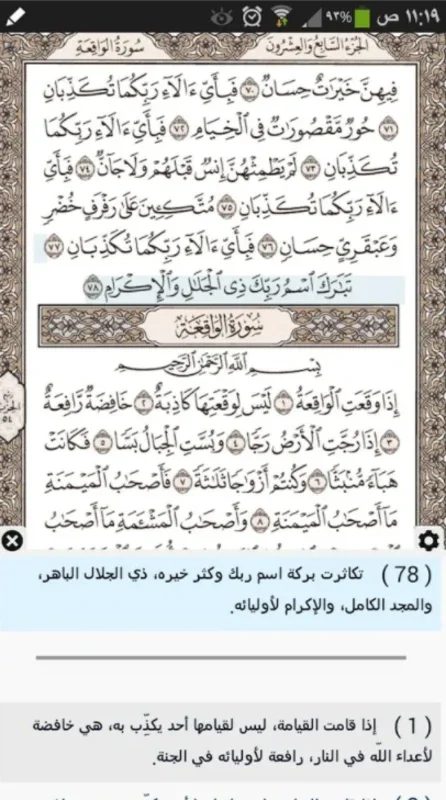 ١١:١٩ ص ٩٣%
الجزء السابع والعشرون سورة الواقعة
فِيهِنَّ خَيْرَاتٌ حِسَانٌ ٧٠ فَبِأَيِّ ءَالَآءِ رَبِّكُمَا تُكَذِّبَانِ
٧١ حُورٌ مَّقْصُورَاتٌ فِي الْخِيَامِ ٧٢ فَبِأَيِّ ءَالَآءِ رَبِّكُمَا
تُكَذِّبَانِ ٧٣ لَمْ يَطْمِثْهُنَّ إِنسٌ قَبْلَهُمْ وَلَا جَآنٌّ ٧٤ فَبِأَيِّ
ءَالَآءِ رَبِّكُمَا تُكَذِّبَانِ ٧٥ مُتَّكِئِينَ عَلَىٰ رَفْرَفٍ خُضْرٍ
وَعَبْقَرِيٍّ حِسَانٍ ٧٦ فَبِأَيِّ ءَالَآءِ رَبِّكُمَا تُكَذِّبَانِ ٧٧
تَبَارَكَ اسْمُ رَبِّكَ ذِي الْجَلَالِ وَالْإِكْرَامِ ٧٨
سورة الواقعة
بِسْمِ اللَّهِ الرَّحْمَٰنِ الرَّحِيمِ
إِذَا وَقَعَتِ الْوَاقِعَةُ ١ لَيْسَ لِوَقْعَتِهَا كَاذِبَةٌ ٢ خَافِضَةٌ رَّافِعَةٌ
٣ إِذَا رُجَّتِ الْأَرْضُ رَجًّا ٤ وَبُسَّتِ الْجِبَالُ بَسًّا ٥ فَكَانَتْ
هَبَآءً مُّنْبَثًّا ٦ وَكُنتُمْ أَزْوَاجًا ثَلَاثَةً ٧ فَأَصْحَابُ الْمَيْمَنَةِ
مَآ أَصْحَابُ الْمَيْمَنَةِ ٨ وَأَصْحَابُ الْمَشْـَٔمَةِ مَآ أَصْحَابُ
(78) تكاثرت بركة اسم ربك وكثر خيره، ذي الجلال الباهر،
والمجد الكامل، والإكرام لأوليائه.
(1) إذا قامت القيامة، ليس لقيامها أحد يكذِّب به، هي خافضة
لأعداء الله في النار، رافعة لأوليائه في الجنة.